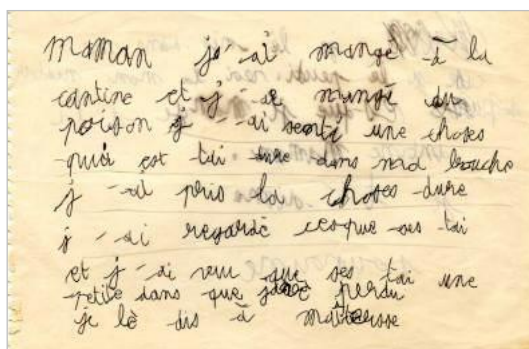 maman j'ai mangé à la
cantine et j'ai mangé du
poison j'ai senti une choses
qui est tai dure dans ma bouche
j'ai pris la choses dure
j'ai regardé cesque ses tai
et j'ai veu que ses tai une
petite dans que j'avé perdu
je lè dis à maiteresse